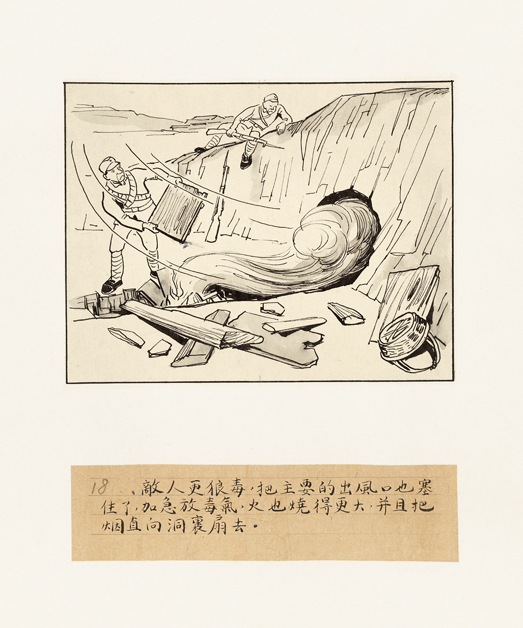 18 、敵人更狼毒,把主要的出風口也塞
住了,加急放毒氣,火也燒得更大,并且把
烟直向洞裏扇去。